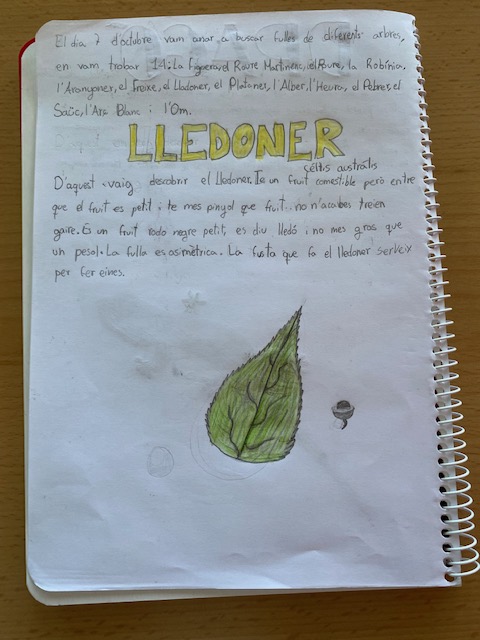 El dia 7 d'octubre vam anar a buscar fulles de diferents arbres,
en vam trobar 14: La figuera, el Roure Martinenc, el Roure, la Robínia,
l'Aranyoner, el Freixe, el Lledoner, el Platoner, l'Alber, l'Heura, el Pobrer, el
Saüc, l'Arç Blanc i l'Om.
LLEDONER
céltis australis
D'aquest vaig descobrir el lledoner. Te un fruit comestible però entre
que el fruit es petit i te mes pinyol que fruit no n'acabes treien
gaire. És un fruit rodo negre petit, es diu lledó i no mes gros que
un pesol. La fulla es asimètrica. La fusta que fa el lledoner serveix
per fer eines.